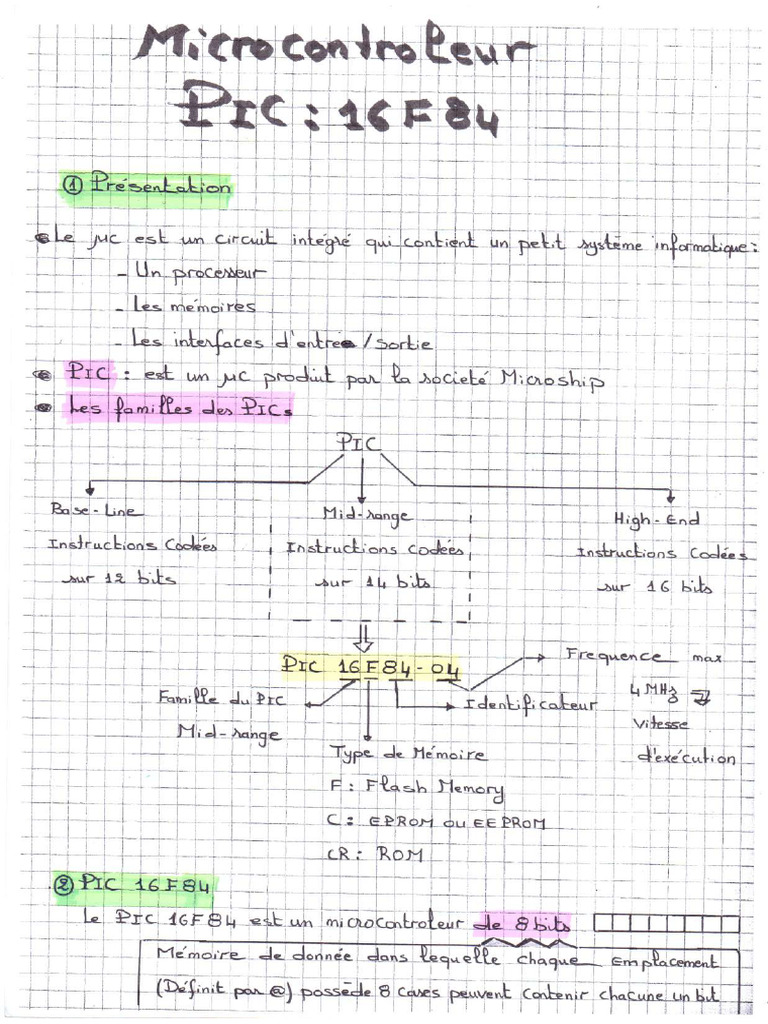 Microcontroleur
PIC : 16F84
① Présentation
Le µc est un circuit intégré qui contient un petit système informatique :
- Un processeur
- Les mémoires
- Les interfaces d'entrée / Sortie
PIC : est un µc produit par la societé Microship
Les familles des PICs
PIC
Base-Line
Instructions Codées
sur 12 bits
Mid-range
Instructions codées
sur 14 bits
High-End
Instructions Codées
sur 16 bits
PIC 16F84-04
Frequence max
4 MHz
Vitesse
d'exécution
Famille du PIC
Mid-range
Identificateur
Type de Mémoire
F : Flash Memory
C : EPROM ou EEPROM
CR : ROM
② PIC 16F84
Le PIC 16F84 est un microcontroleur de 8 bits
Mémoire de donnée dans lequelle chaque emplacement
(Définit par @) possède 8 cases peuvent contenir chacune un bit